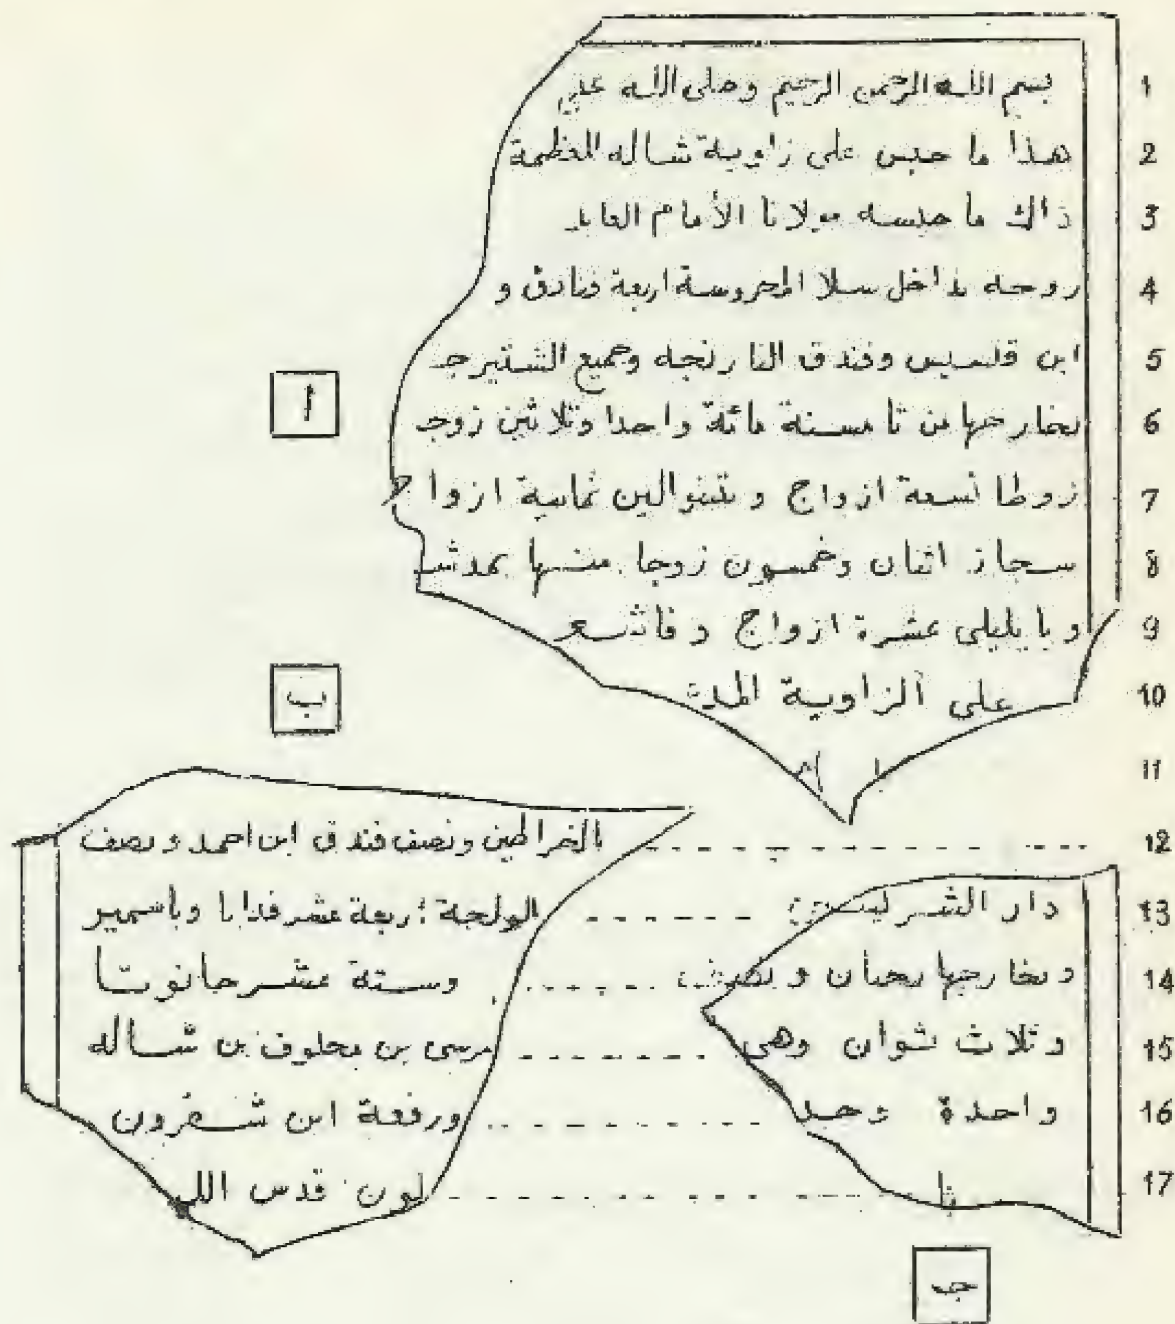 بسم الله الرحمن الرحيم وصلى الله على 1
هذا ما حبس على زاوية شاله المعظمة 2
ذاك ما حبسه مولانا الأمام العابد 3
روحه بداخل سلا المحروسة اربعة فنادق و 4
ابن قلسيس وفندق النارنجه وجميع الشتيرجـ 5
أ
بخارجها من تامسنة مائة واحدا وثلاثين زوجـ 6
زوطا تسعة ازواج و تتنوالين ثمانية ازواج 7
سجاز اثنان وخمسون زوجا منها بمدشـ 8
و با يليلى عشرة ازواج و فاتسع 9
ب
على الزاوية المذ 10
11
بالخراطين ونصف فندق ابن احمد ونصف 12
دار الشر ........ الولجة اربعة عشر فدانا وباسمير 13
وبخارجها بحبان و نصف ........ وستة عشر حانوتا 14
و ثلاث شوان وهي ........ مرسى بن مخلوف بن شاله 15
واحدة وحد ........ ورفعة ابن شقرون 16
نا ........ لون قدس اللـ 17
جـ